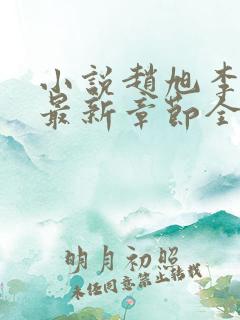 小說趙旭李
最新章節全
明月初照
未經同意禁止轉載